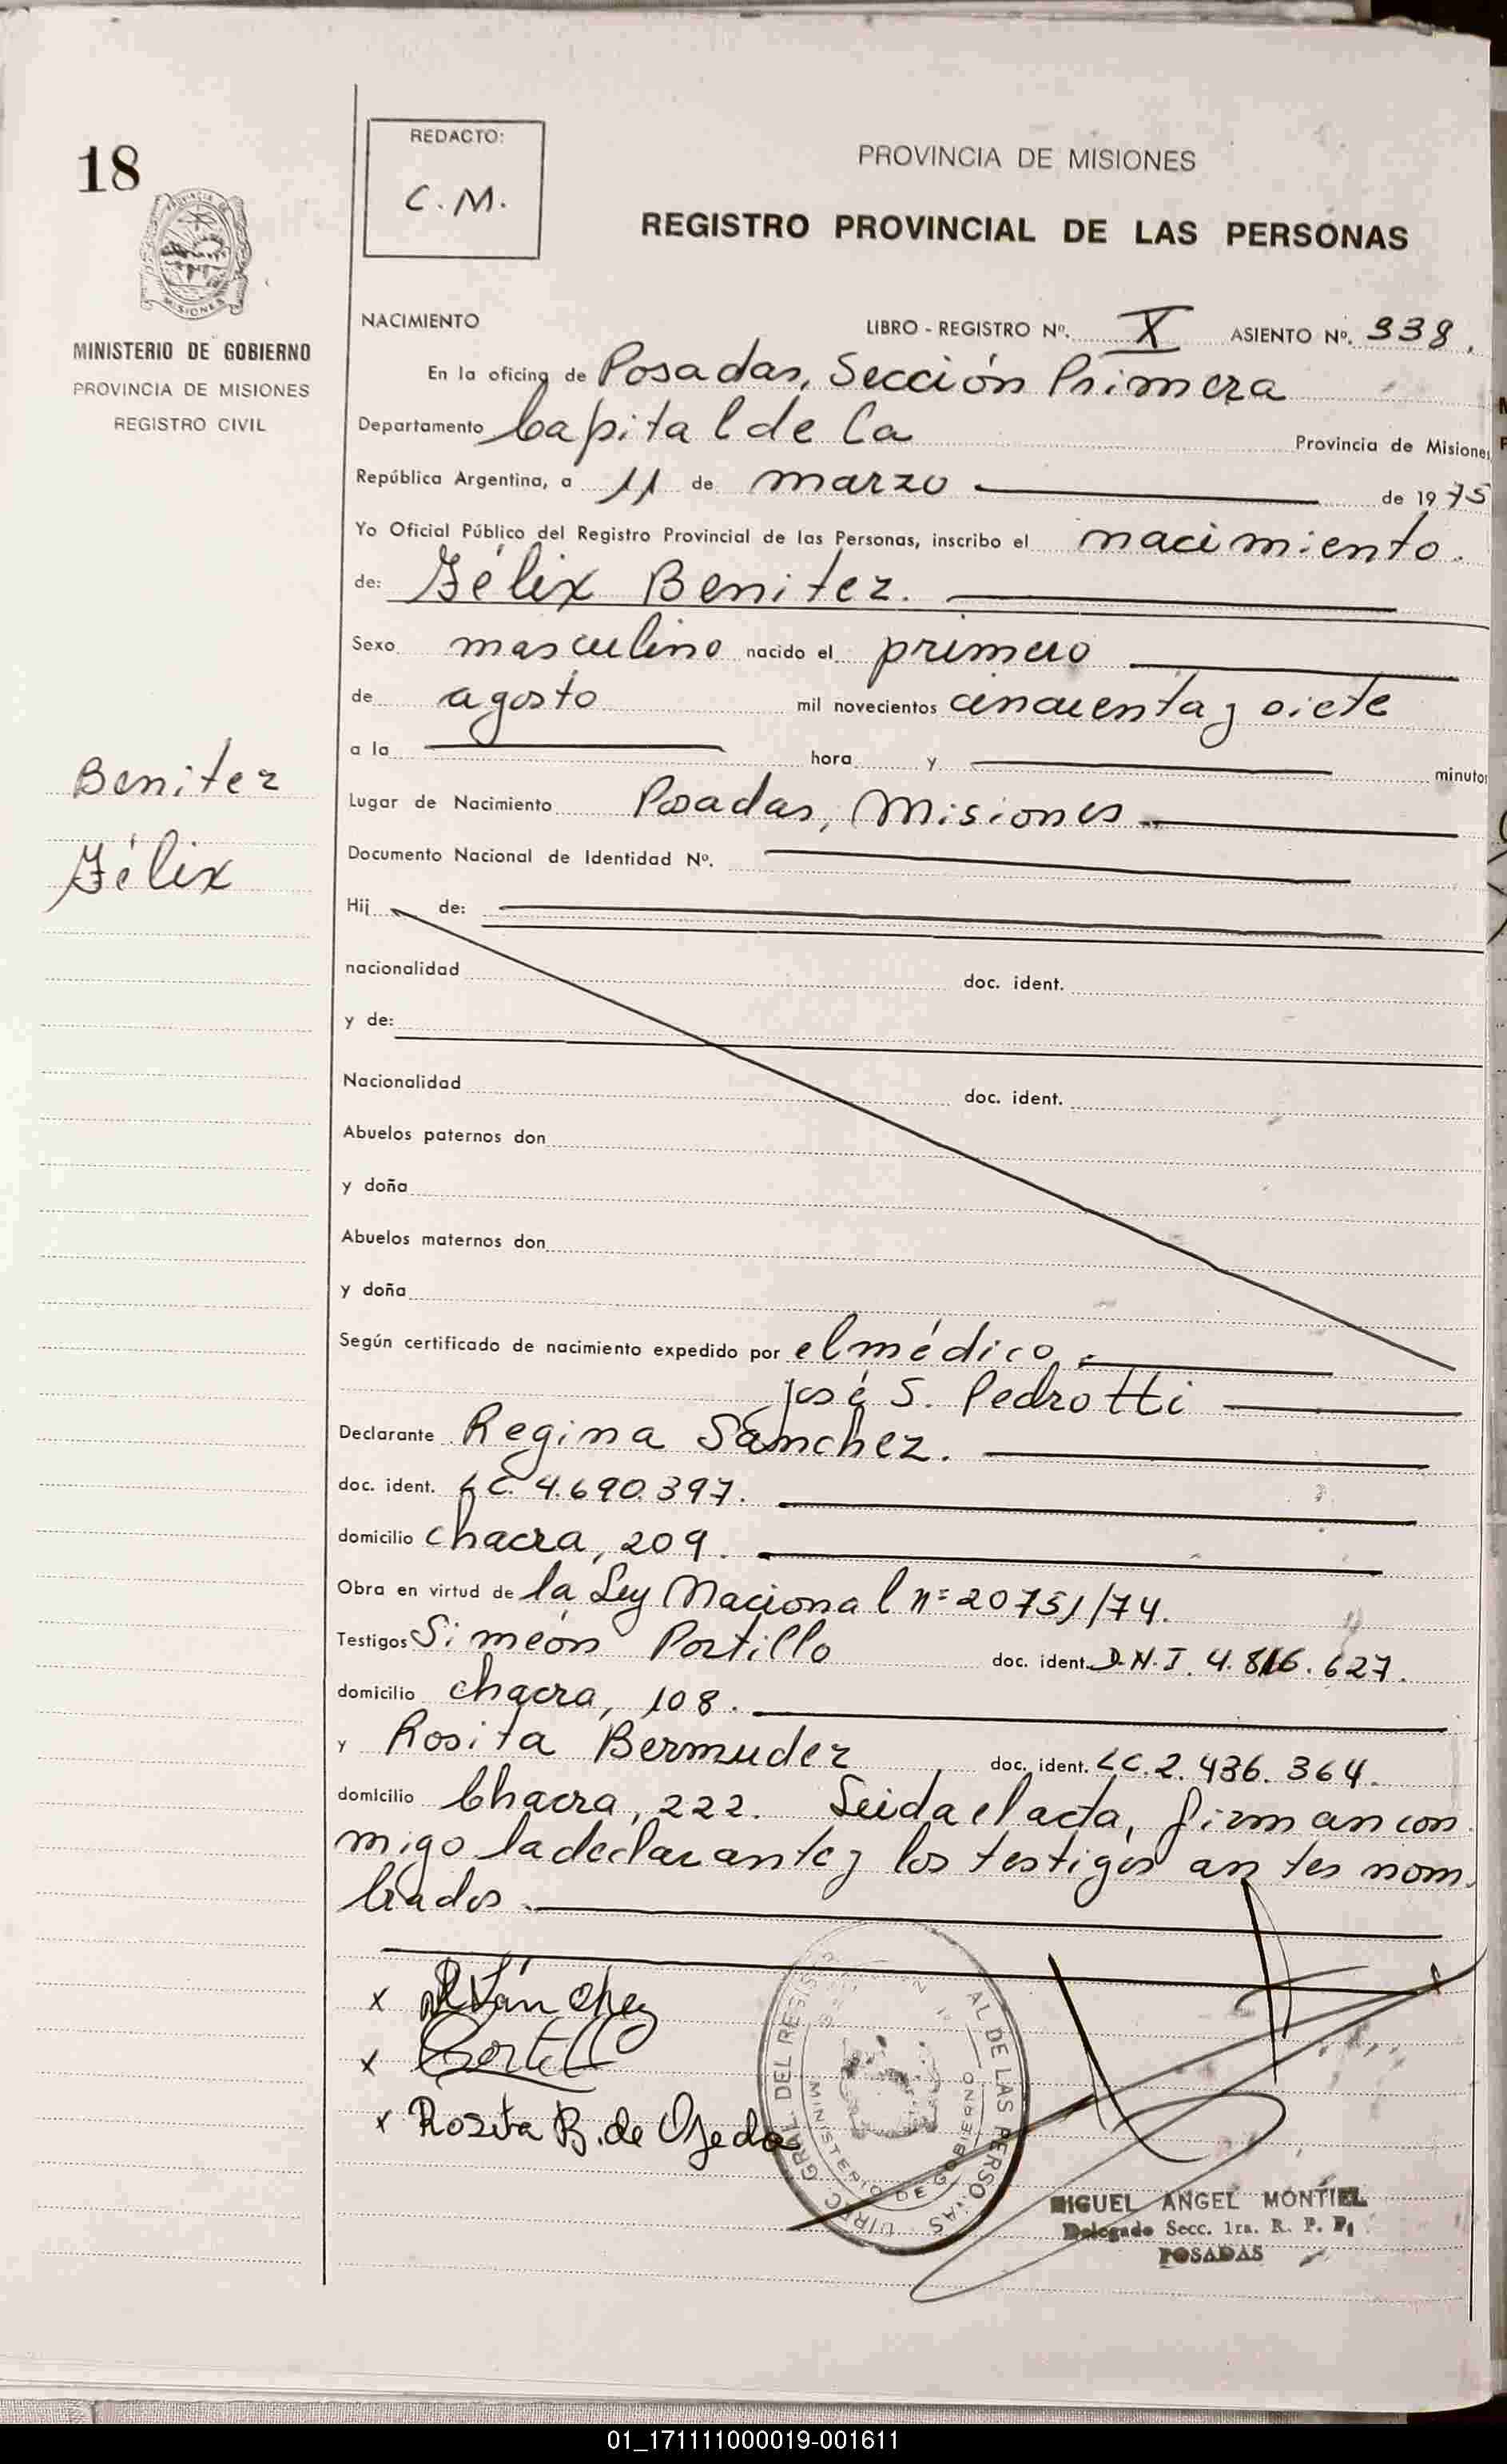 18
REDACTO:
C.M.
PROVINCIA DE MISIONES
REGISTRO PROVINCIAL DE LAS PERSONAS
MISIONES
MINISTERIO DE GOBIERNO
PROVINCIA DE MISIONES
REGISTRO CIVIL
NACIMIENTO LIBRO - REGISTRO Nº. X ASIENTO Nº. 338.
En la oficina de Posadas, Sección Primera
Departamento Capital de la Provincia de Misiones
República Argentina, a 11 de marzo de 1975
Yo Oficial Público del Registro Provincial de las Personas, inscribo el nacimiento.
de: Félix Benitez.
Sexo masculino nacido el primero
de agosto mil novecientos cincuenta y siete
a la hora y minutos
Benitez
Félix
Lugar de Nacimiento Posadas, Misiones
Documento Nacional de Identidad Nº.
Hij de:
nacionalidad doc. ident.
y de:
Nacionalidad doc. ident.
Abuelos paternos don
y doña
Abuelos maternos don
y doña
Según certificado de nacimiento expedido por el médico,
José S. Pedrotti
Declarante Regina Sánchez.
doc. ident. LC. 4.690.397.
domicilio chacra, 209.
Obra en virtud de la Ley Nacional n= 20751/74.
Testigos Simeón Portillo doc. ident. D.N.I. 4.816.627.
domicilio chacra, 108.
y Rosita Bermudez doc. ident. LC. 2.436.364.
domicilio Chacra, 222. Leida el acta, firman con
migo la declarante y los testigos antes nom
brados.
x R Sánchez
x Portillo
x Rosita B. de Ojeda
DIREC. GRAL. DEL REGIS AL DE LAS PERSONAS
MINISTERIO DE GOBIERNO
MIGUEL ANGEL MONTIEL
Delegado Secc. 1ra. R. P. P.
POSADAS
01_171111000019-001611